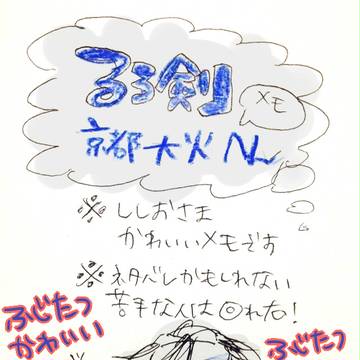 るろ剣
メモ
京都大火ハン
※ししおさま
かわいいメモです
※ネタバレかもしれない
苦手な人は回れ右!
ふじたつ
かわいい
ふじたつ